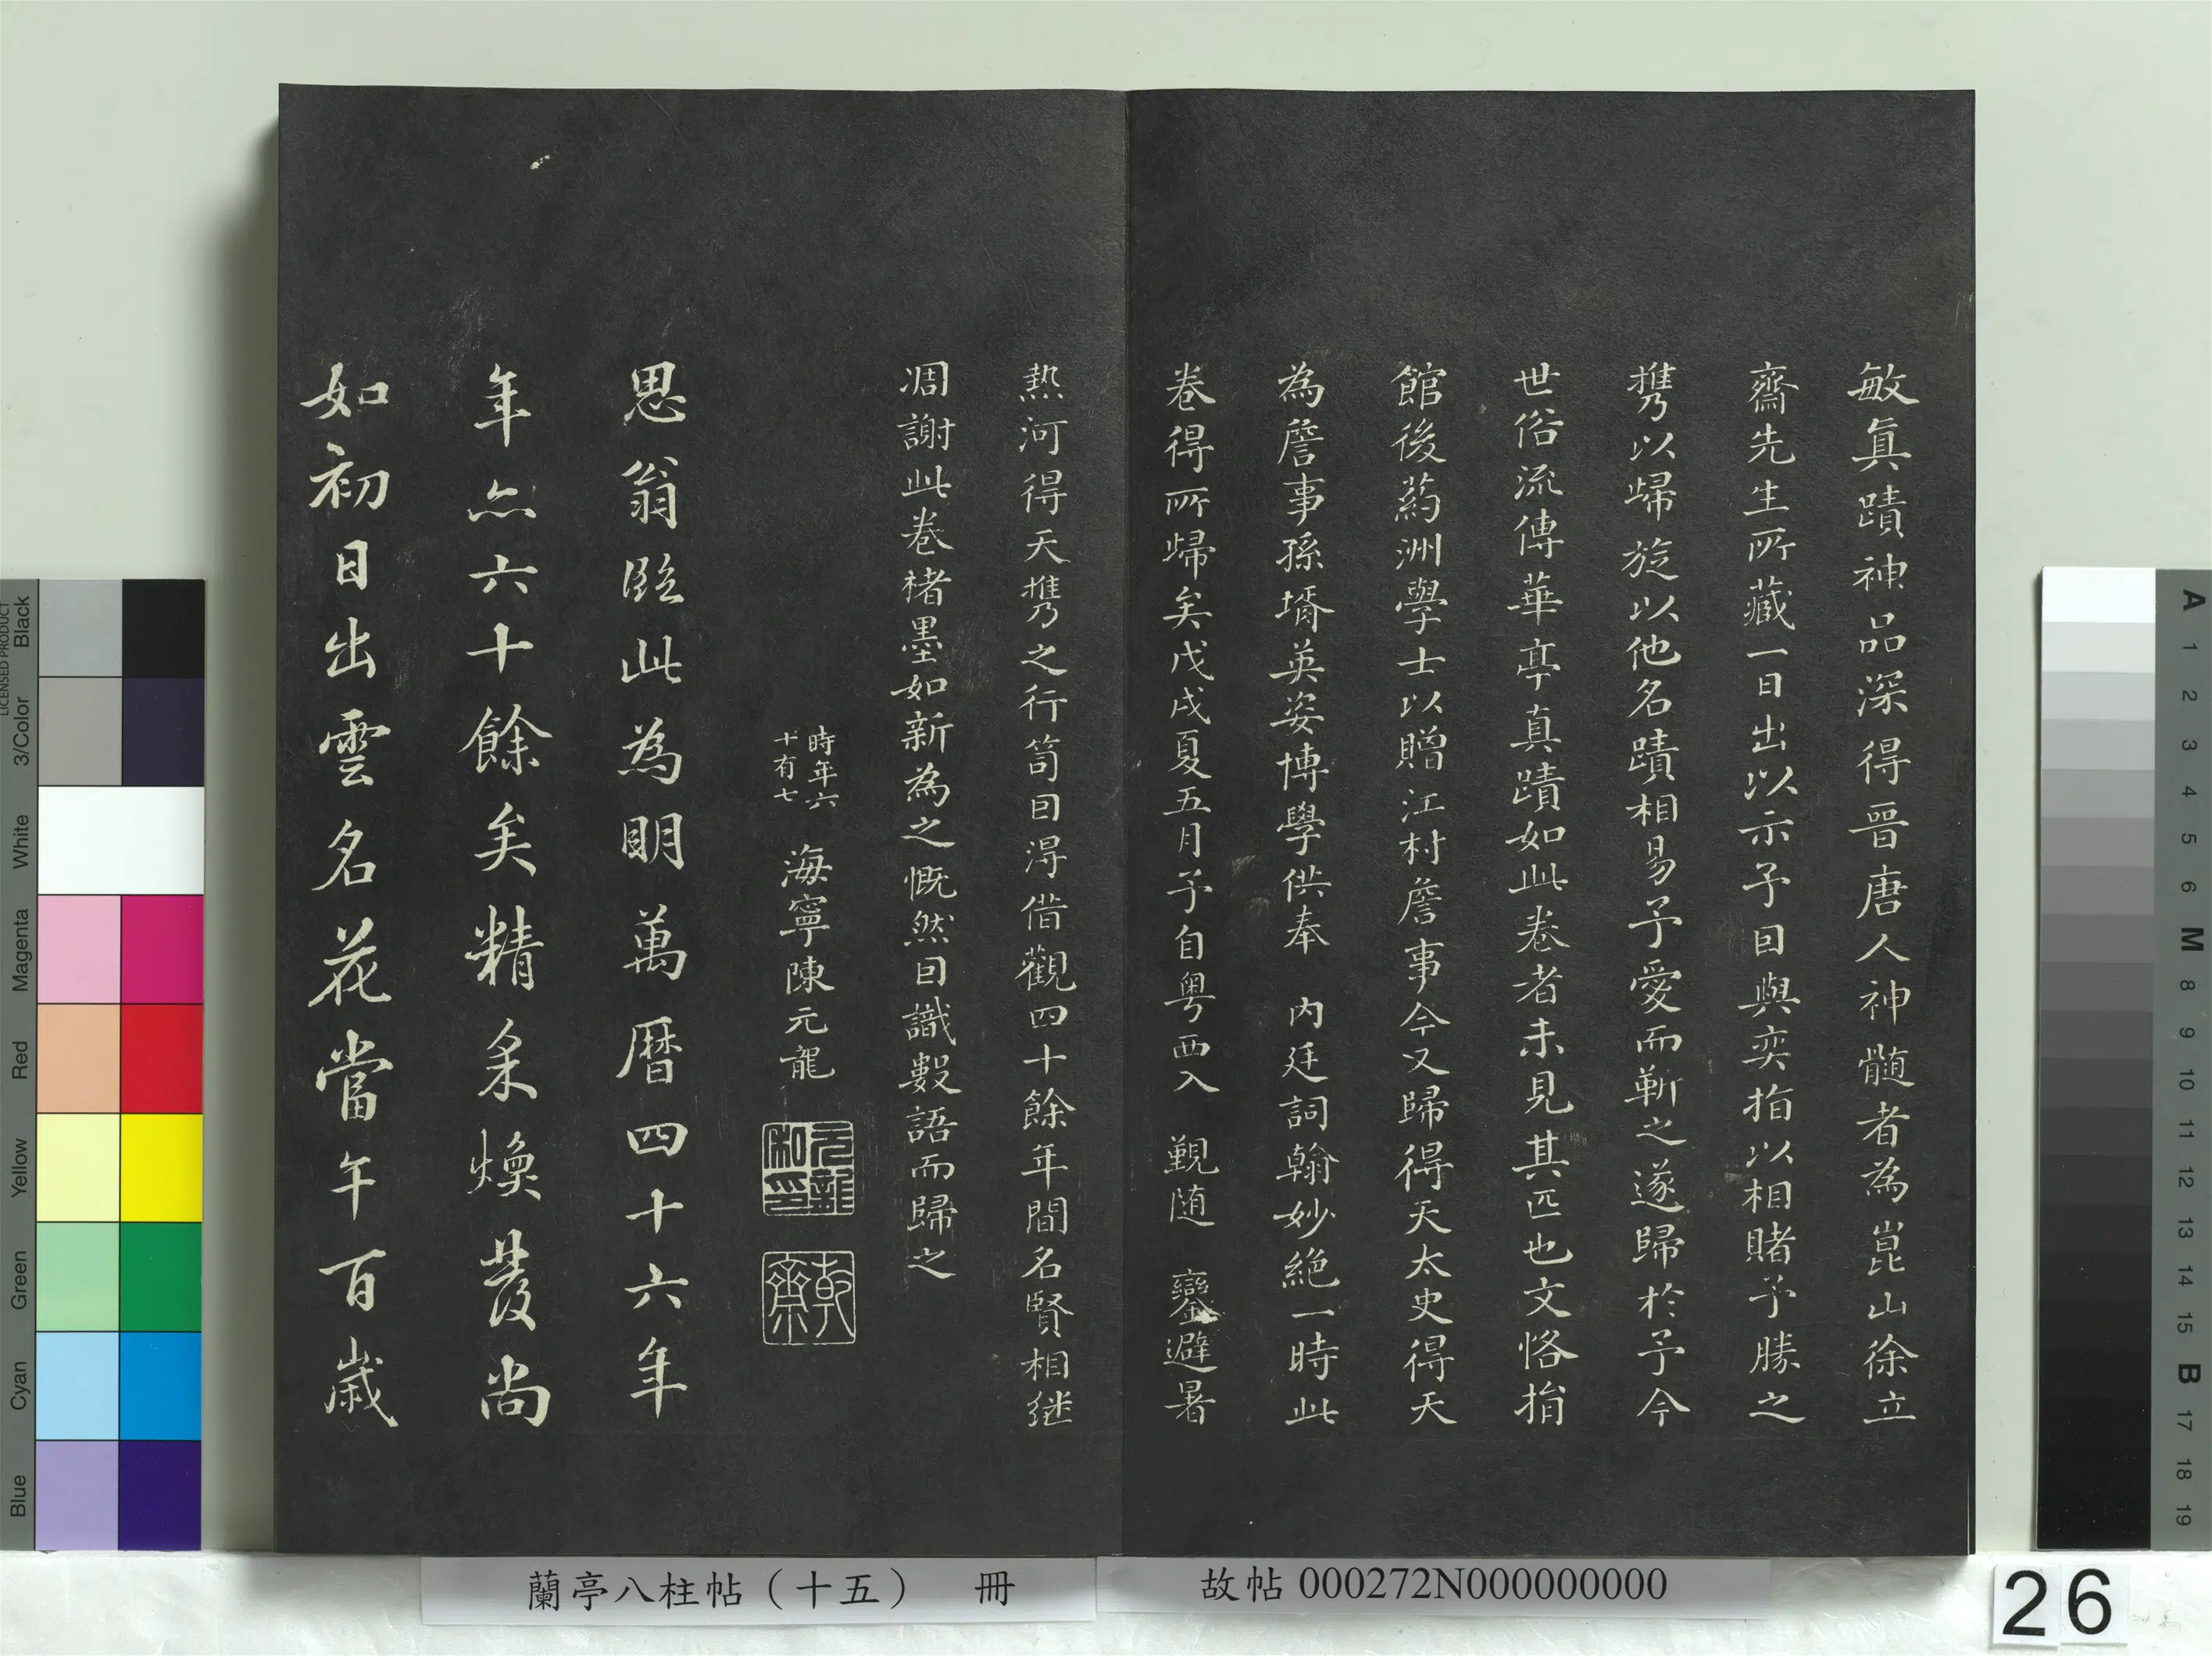 敏真蹟神品深得晉唐人神髄者為崑山徐立
齋先生所藏一日出以示予曰與奕指以相賭予勝之
攜以歸旋以他名蹟相易予愛而靳之遂歸於予今
世俗流傳華亭真蹟如此卷者未見其匹也文恪指
館後葯洲學士以贈江村詹事今又歸得天太史得天
為詹事孫壻英姿博學供奉 內廷詞翰妙絕一時此
卷得所歸矣戊戌夏五月予自粵西入 覲随 鑾避暑
熱河得天攜之行笥因淂借觀四十餘年間名賢相继
凋謝此卷楮墨如新為之慨然因識數語而歸之
時年六
十有七
海寧陳元龍
元龍私印
乾齋
思翁臨此為明萬曆四十六年
年亦六十餘矣精采煥發尚
如初日出雲名花當午百歲
蘭亭八柱帖（十五） 冊
故帖 000272N000000000
26
LICENSED PRODUCT
Black
3/Color
White
Magenta
Red
Yellow
Green
Cyan
Blue
A
1
2
3
4
5
6
M
8
9
10
11
12
13
14
15
B
17
18
19